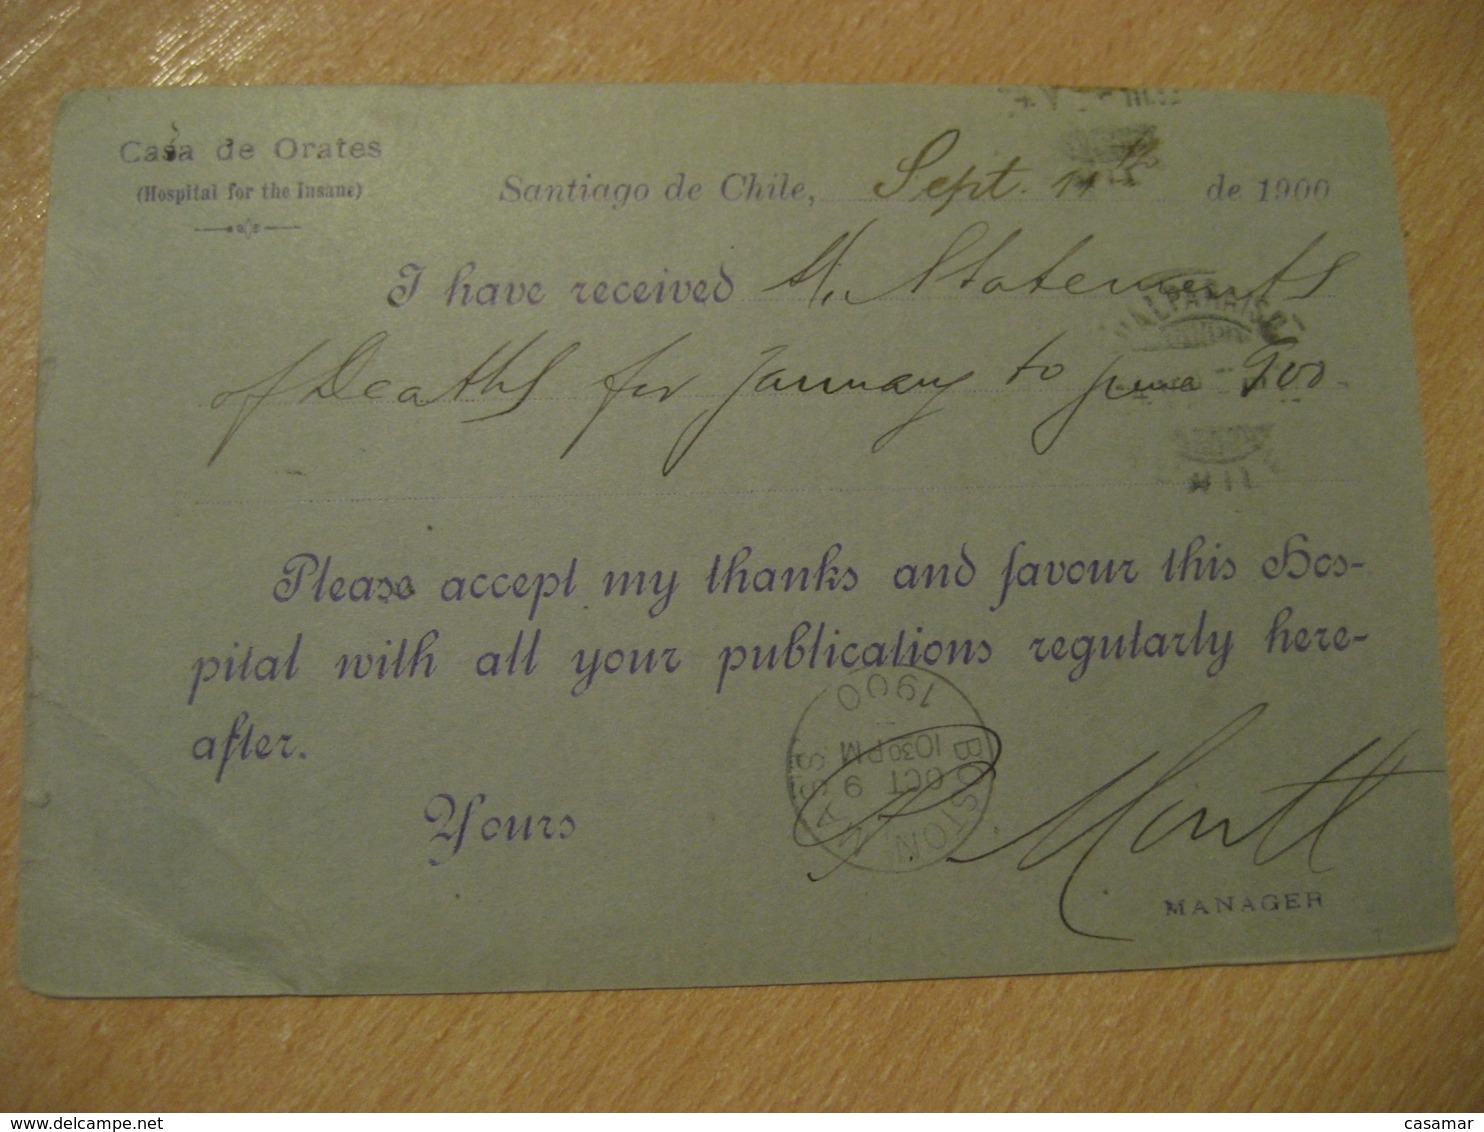 Casa de Orates
(Hospital for the Insane)
Santiago de Chile, Sept. 11th de 1900
I have received Statements
of Deaths for January to june 900
Please accept my thanks and favour this Hos-
pital with all your publications regularly here-
after.
Yours
Montt
MANAGER
VALPARAISO
BOSTON MASS
OCT 9
10 30 PM
1900
delcampe.net
casamar